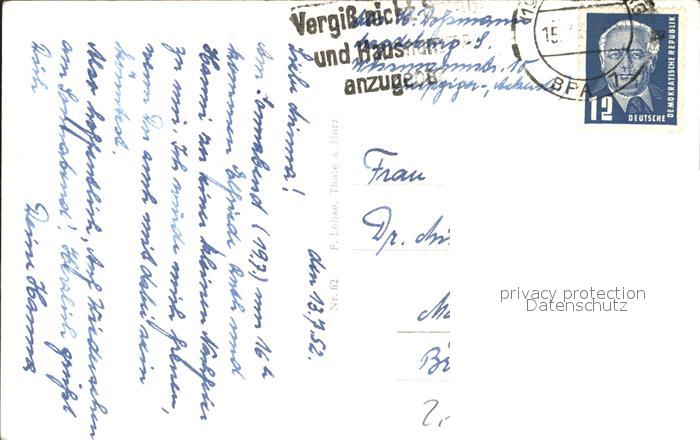 Vergiß nicht
und Haus
anzugeb
15.7.
BPA
12
DEUTSCHE
DEMOKRATISCHE REPUBLIK
10
Leipziger
den 13.7.52.
Liebe
Am Sonnabend (19.7) um 16 h
kommen Elfriede, Ruth und
Hanni zu einer kleinen Nachfeier
zu mir. Ich würde mich freuen,
wenn Du auch mit dabei sein
könntest.
Also hoffentlich "Auf Wiedersehen
am Sonnabend! Herzlich grüßt
Dich
Deine Hanna
Nr. 62 F. Lohse, Thale a. Harz
Frau
Dr.
privacy protection
Datenschutz